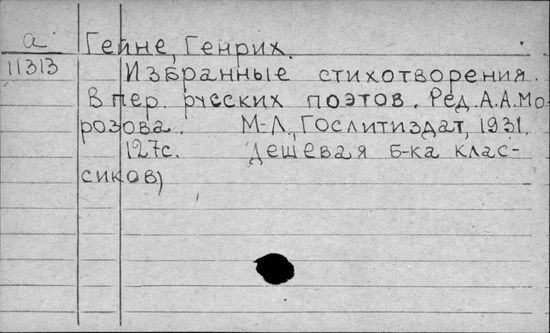 а Гейне, Генрих.
11313 Избранные стихотворения.
В пер. русских поэтов. Ред. А.А.Мо-
розова. М-Л., Гослитиздат, 1931.
127с. Дешевая б-ка клас-
сиков)